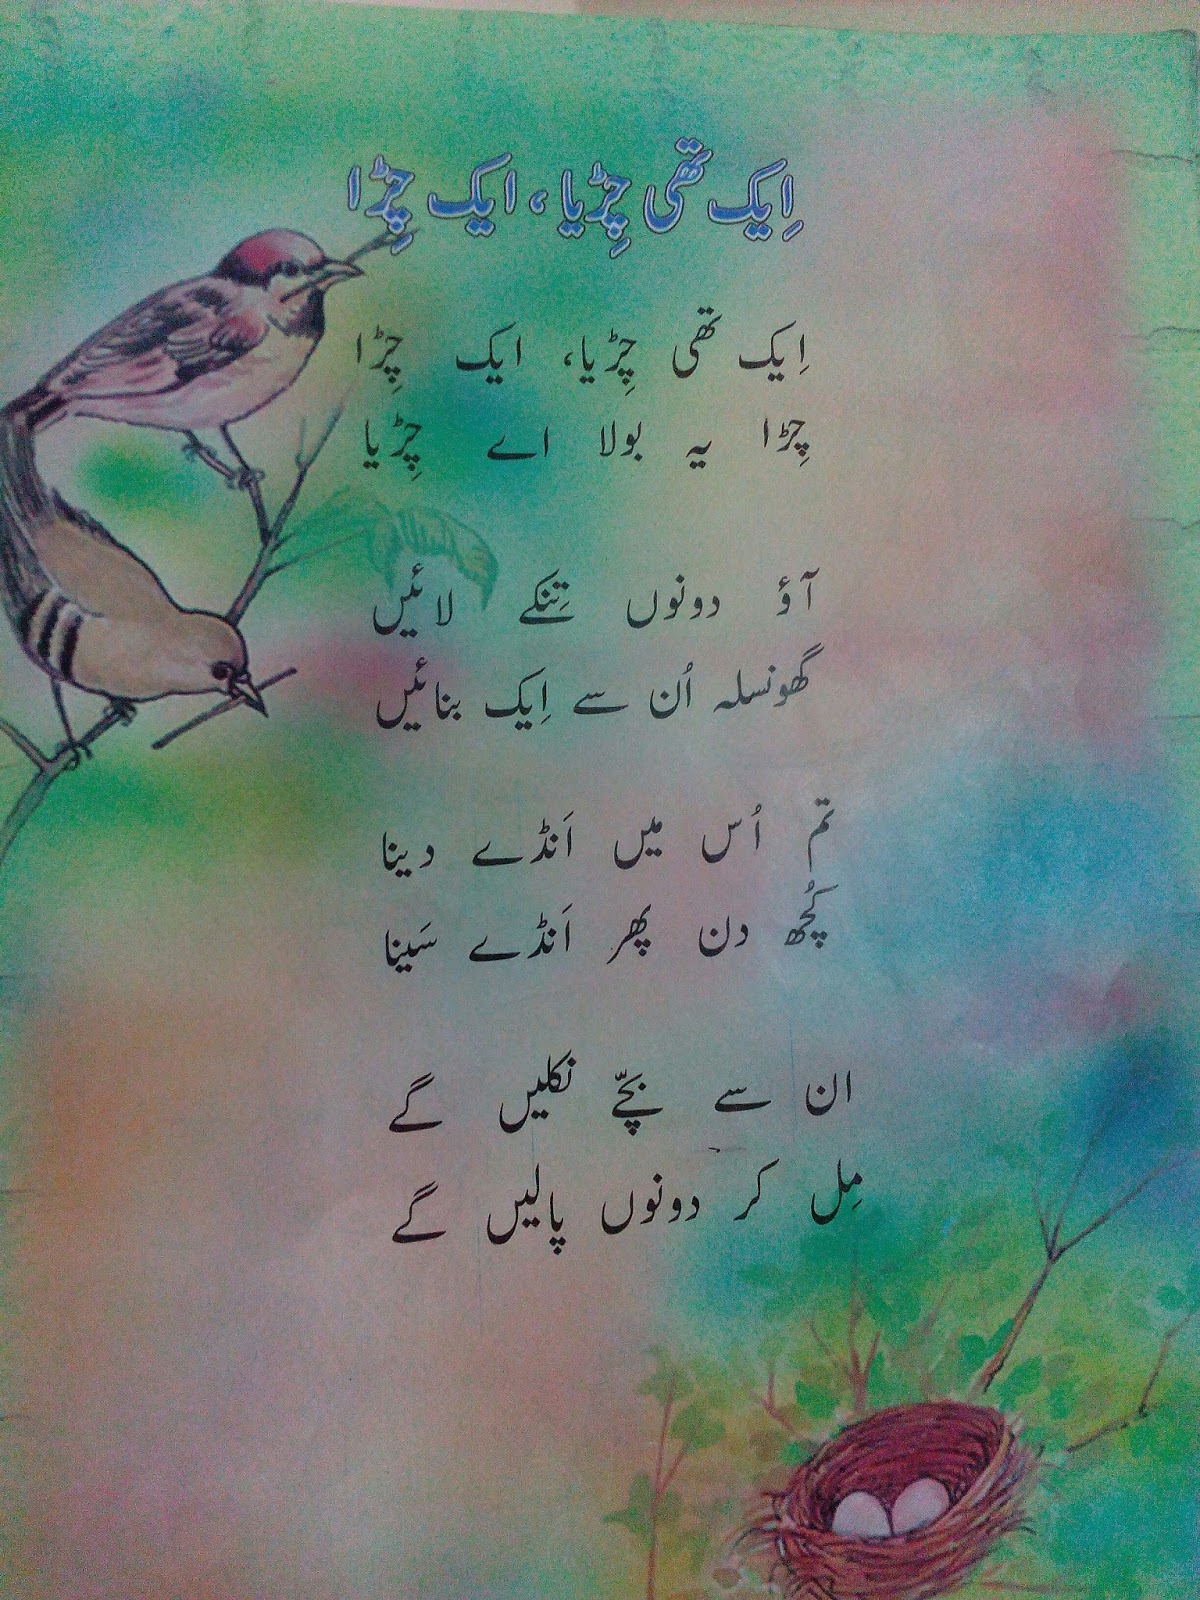 اِیک تھی چِڑیا، ایک چِڑا
اِیک تھی چِڑیا، ایک چِڑا
چِڑا یہ بولا اے چِڑیا
آؤ دونوں تِنکے لائیں
گھونسلہ اُن سے اِیک بنائیں
تم اُس میں اَنڈے دینا
کُچھ دن پھر اَنڈے سَینا
ان سے بچّے نکلیں گے
مِل کر دونوں پالیں گے